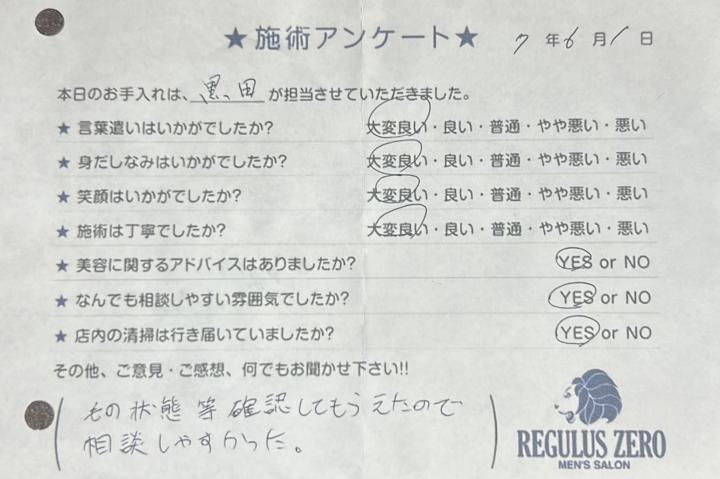 ★施術アンケート★ 7年6月1日
本日のお手入れは、黒田が担当させていただきました。
★ 言葉遣いはいかがでしたか? 大変良い・良い・普通・やや悪い・悪い
★ 身だしなみはいかがでしたか? 大変良い・良い・普通・やや悪い・悪い
★ 笑顔はいかがでしたか? 大変良い・良い・普通・やや悪い・悪い
★ 施術は丁寧でしたか? 大変良い・良い・普通・やや悪い・悪い
★ 美容に関するアドバイスはありましたか? YES or NO
★ なんでも相談しやすい雰囲気でしたか? YES or NO
★ 店内の清掃は行き届いていましたか? YES or NO
その他、ご意見・ご感想、何でもお聞かせ下さい!!
その状態等確認してもらえたので
相談しやすかった。
REGULUS ZERO
MEN'S SALON